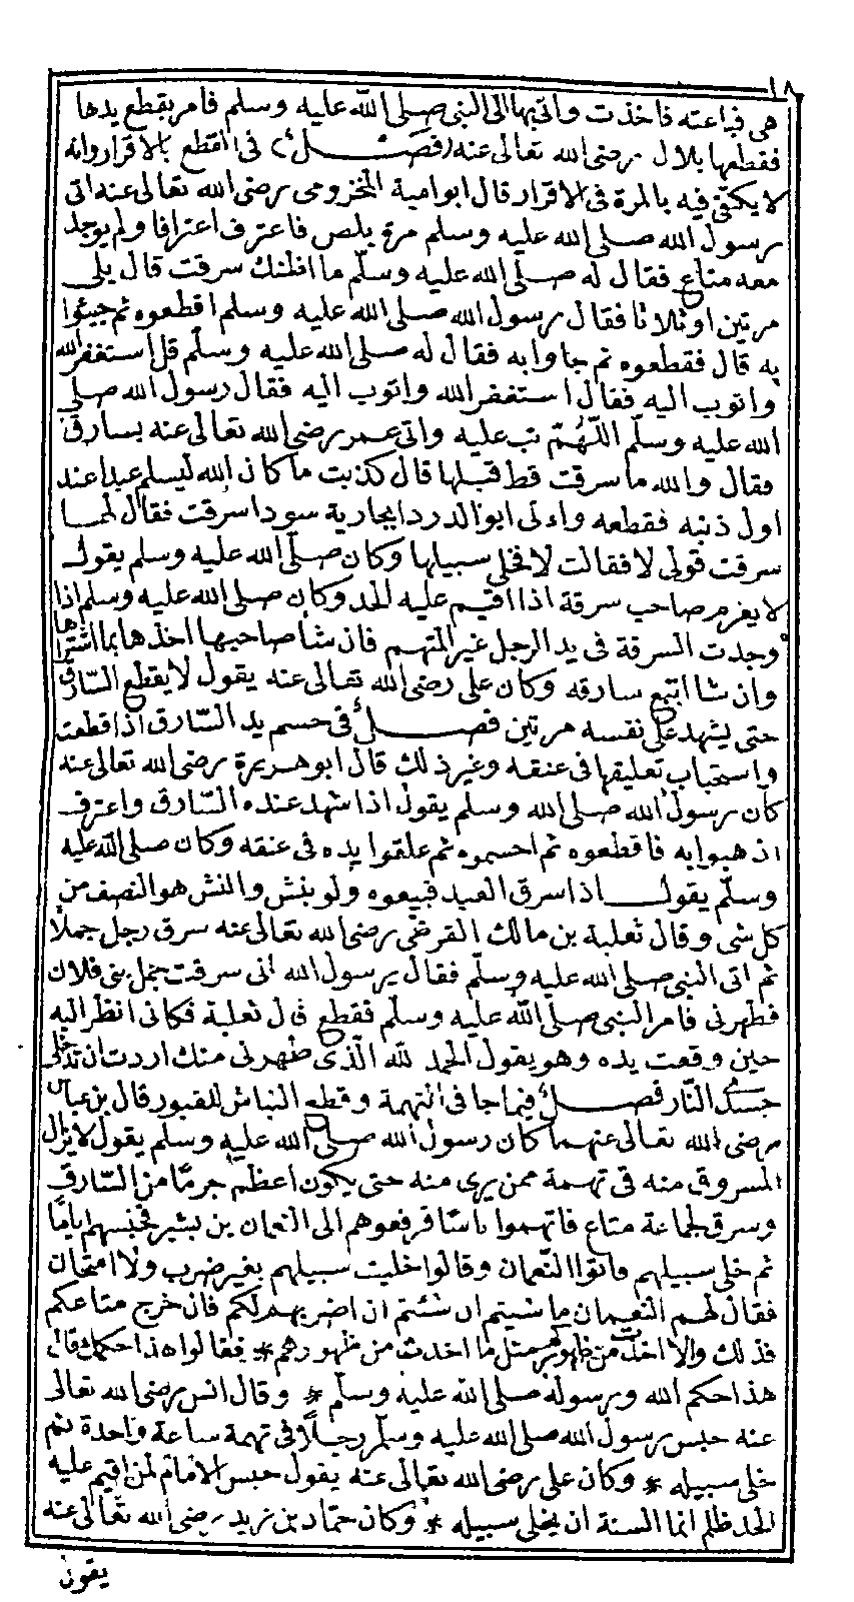 ١٨
هى فباعته فاخذت واتى بها الى النبى صلى الله عليه وسلم فامر بقطع يدها
فقطعها بلال رضى الله تعالى عنه (فصل) فى القطع بالاقرار وانه
لا يكتفى فيه بالمرة فى الاقرار قال ابو امية المخزومى رضى الله تعالى عنه اتى
رسول الله صلى الله عليه وسلم مرة بلص فاعترف اعترافا ولم يوجد
معه متاع فقال له صلى الله عليه وسلم ما اظنك سرقت قال بلى
مرتين او ثلاثا فقال رسول الله صلى الله عليه وسلم اقطعوه ثم جيئوا
به قال فقطعوه ثم جاوا به فقال له صلى الله عليه وسلم قل استغفر الله
واتوب اليه فقال استغفر الله واتوب اليه فقال رسول الله صلى
الله عليه وسلم اللهم تب عليه واتى عمر رضى الله تعالى عنه بسارق
فقال والله ما سرقت قط قبلها قال كذبت ما كان الله ليسلم عبدا عند
اول ذنبه فقطعه واتى ابو الدرداء بجارية سودا سرقت فقال لها
سرقت قولى لا فقالت لا فخلى سبيلها وكان صلى الله عليه وسلم يقول
لا يغرم صاحب سرقة اذا اقيم عليه الحد وكان صلى الله عليه وسلم اذا
وجدت السرقة فى يد الرجل غير المتهم فان شأ صاحبها اخذها بما اشتراها
وان شا اتبع سارقه وكان على رضى الله تعالى عنه يقول لا يقطع السارق
حتى يشهد على نفسه مرتين فصل فى حسم يد السارق اذا قطعت
واستحباب تعليقها فى عنقه وغير ذلك قال ابو هريرة رضى الله تعالى عنه
كان رسول الله صلى الله وسلم يقول اذا شهد عنده السارق واعترف
اذهبوا به فاقطعوه ثم احسموه ثم علقوا يده فى عنقه وكان صلى الله عليه
وسلم يقول اذا سرق العبد فبيعوه ولو بنش والنش هو النصف من
كل شى وقال ثعلبة بن مالك القرضى رضى الله تعالى عنه سرق رجل جملا
ثم اتى النبى صلى الله عليه وسلم فقال يرسول الله انى سرقت جمل بنى فلان
فطهرنى فامر النبى صلى الله عليه وسلم فقطع قال ثعلبة فكانى انظر اليه
حين وقعت يده وهو يقول الحمد لله الذى طهرنى منك اردت ان تدخلى
جسدى النار فصل فيما جا فى التهمة وقطع النباش للقبور قال بن عباس
رضى الله تعالى عنهما كان رسول الله صلى الله عليه وسلم يقول لا يزال
المسروق منه فى تهمة ممن برى منه حتى يكون اعظم جرما من السارق
وسرق لجماعة متاع فاتهموا ناسا فرفعوهم الى النعمان بن بشير فحبسهم اياما
ثم خلى سبيلهم فاتوا النعمان وقالوا خليت سبيلهم بغير ضرب ولا امتحان
فقال لهم النعمان ما شيتم ان شئتم ان اضربهم لكم فان خرج متاعكم
فذلك والا اخذت من ظهوركم مثل ما اخذت من ظهورهم * فقالوا هذا حكمك قال
هذا حكم الله ورسوله صلى الله عليه وسلم * وقال انس رضى الله تعالى
عنه حبس رسول الله صلى الله عليه وسلم رجلا فى تهمة ساعة واحدة ثم
خلى سبيله * وكان على رضى الله تعالى عنه يقول حبس الامام لمن اقيم عليه
الحد ظلم انما السنة ان يخلى سبيله * وكان حماد بن زيد رضى الله تعالى عنه
يقول